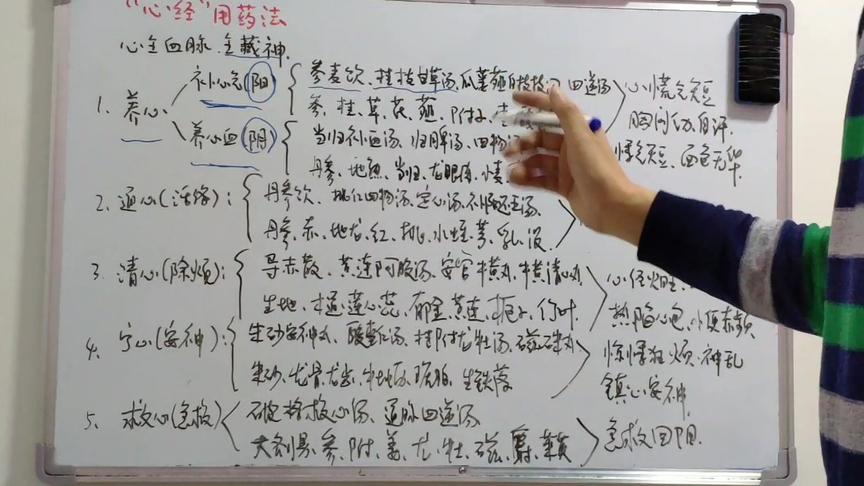 "心经"用药法
心主血脉 主藏神.
1. 养心
补心气(阳)
参麦饮、桂枝甘草汤、瓜蒌薤白 四逆汤
参、桂、草、芪、薤、附子、
心慌气短
胸闷 自汗.
养心血(阴)
当归补血汤、归脾汤、四物
丹参、地熟、当归、龙眼肉、小麦
气短、面色无华.
2. 通心(活络):
丹参饮、桃红四物汤、定心汤、
丹参、赤、地龙、红、桃、水蛭、芎、乳、没.
3. 清心(除烦):
导赤散、黄连阿胶汤、安宫牛黄丸、牛黄清心丸
生地、木通、莲心、 郁金、黄连、栀子、竹叶.
心经火旺
热陷心包、小便赤
4. 宁心(安神):
朱砂安神丸、酸枣仁汤、桂附龙牡汤、磁石朱丸
朱砂、龙骨、龙齿、 琥珀、生铁落
惊悸狂烦、神乱
镇心安神.
5. 救心(急救)
破格救心汤、通脉四逆汤
大剂量、参、附、姜、龙、牡、磁、麝、萸
急救回阳.